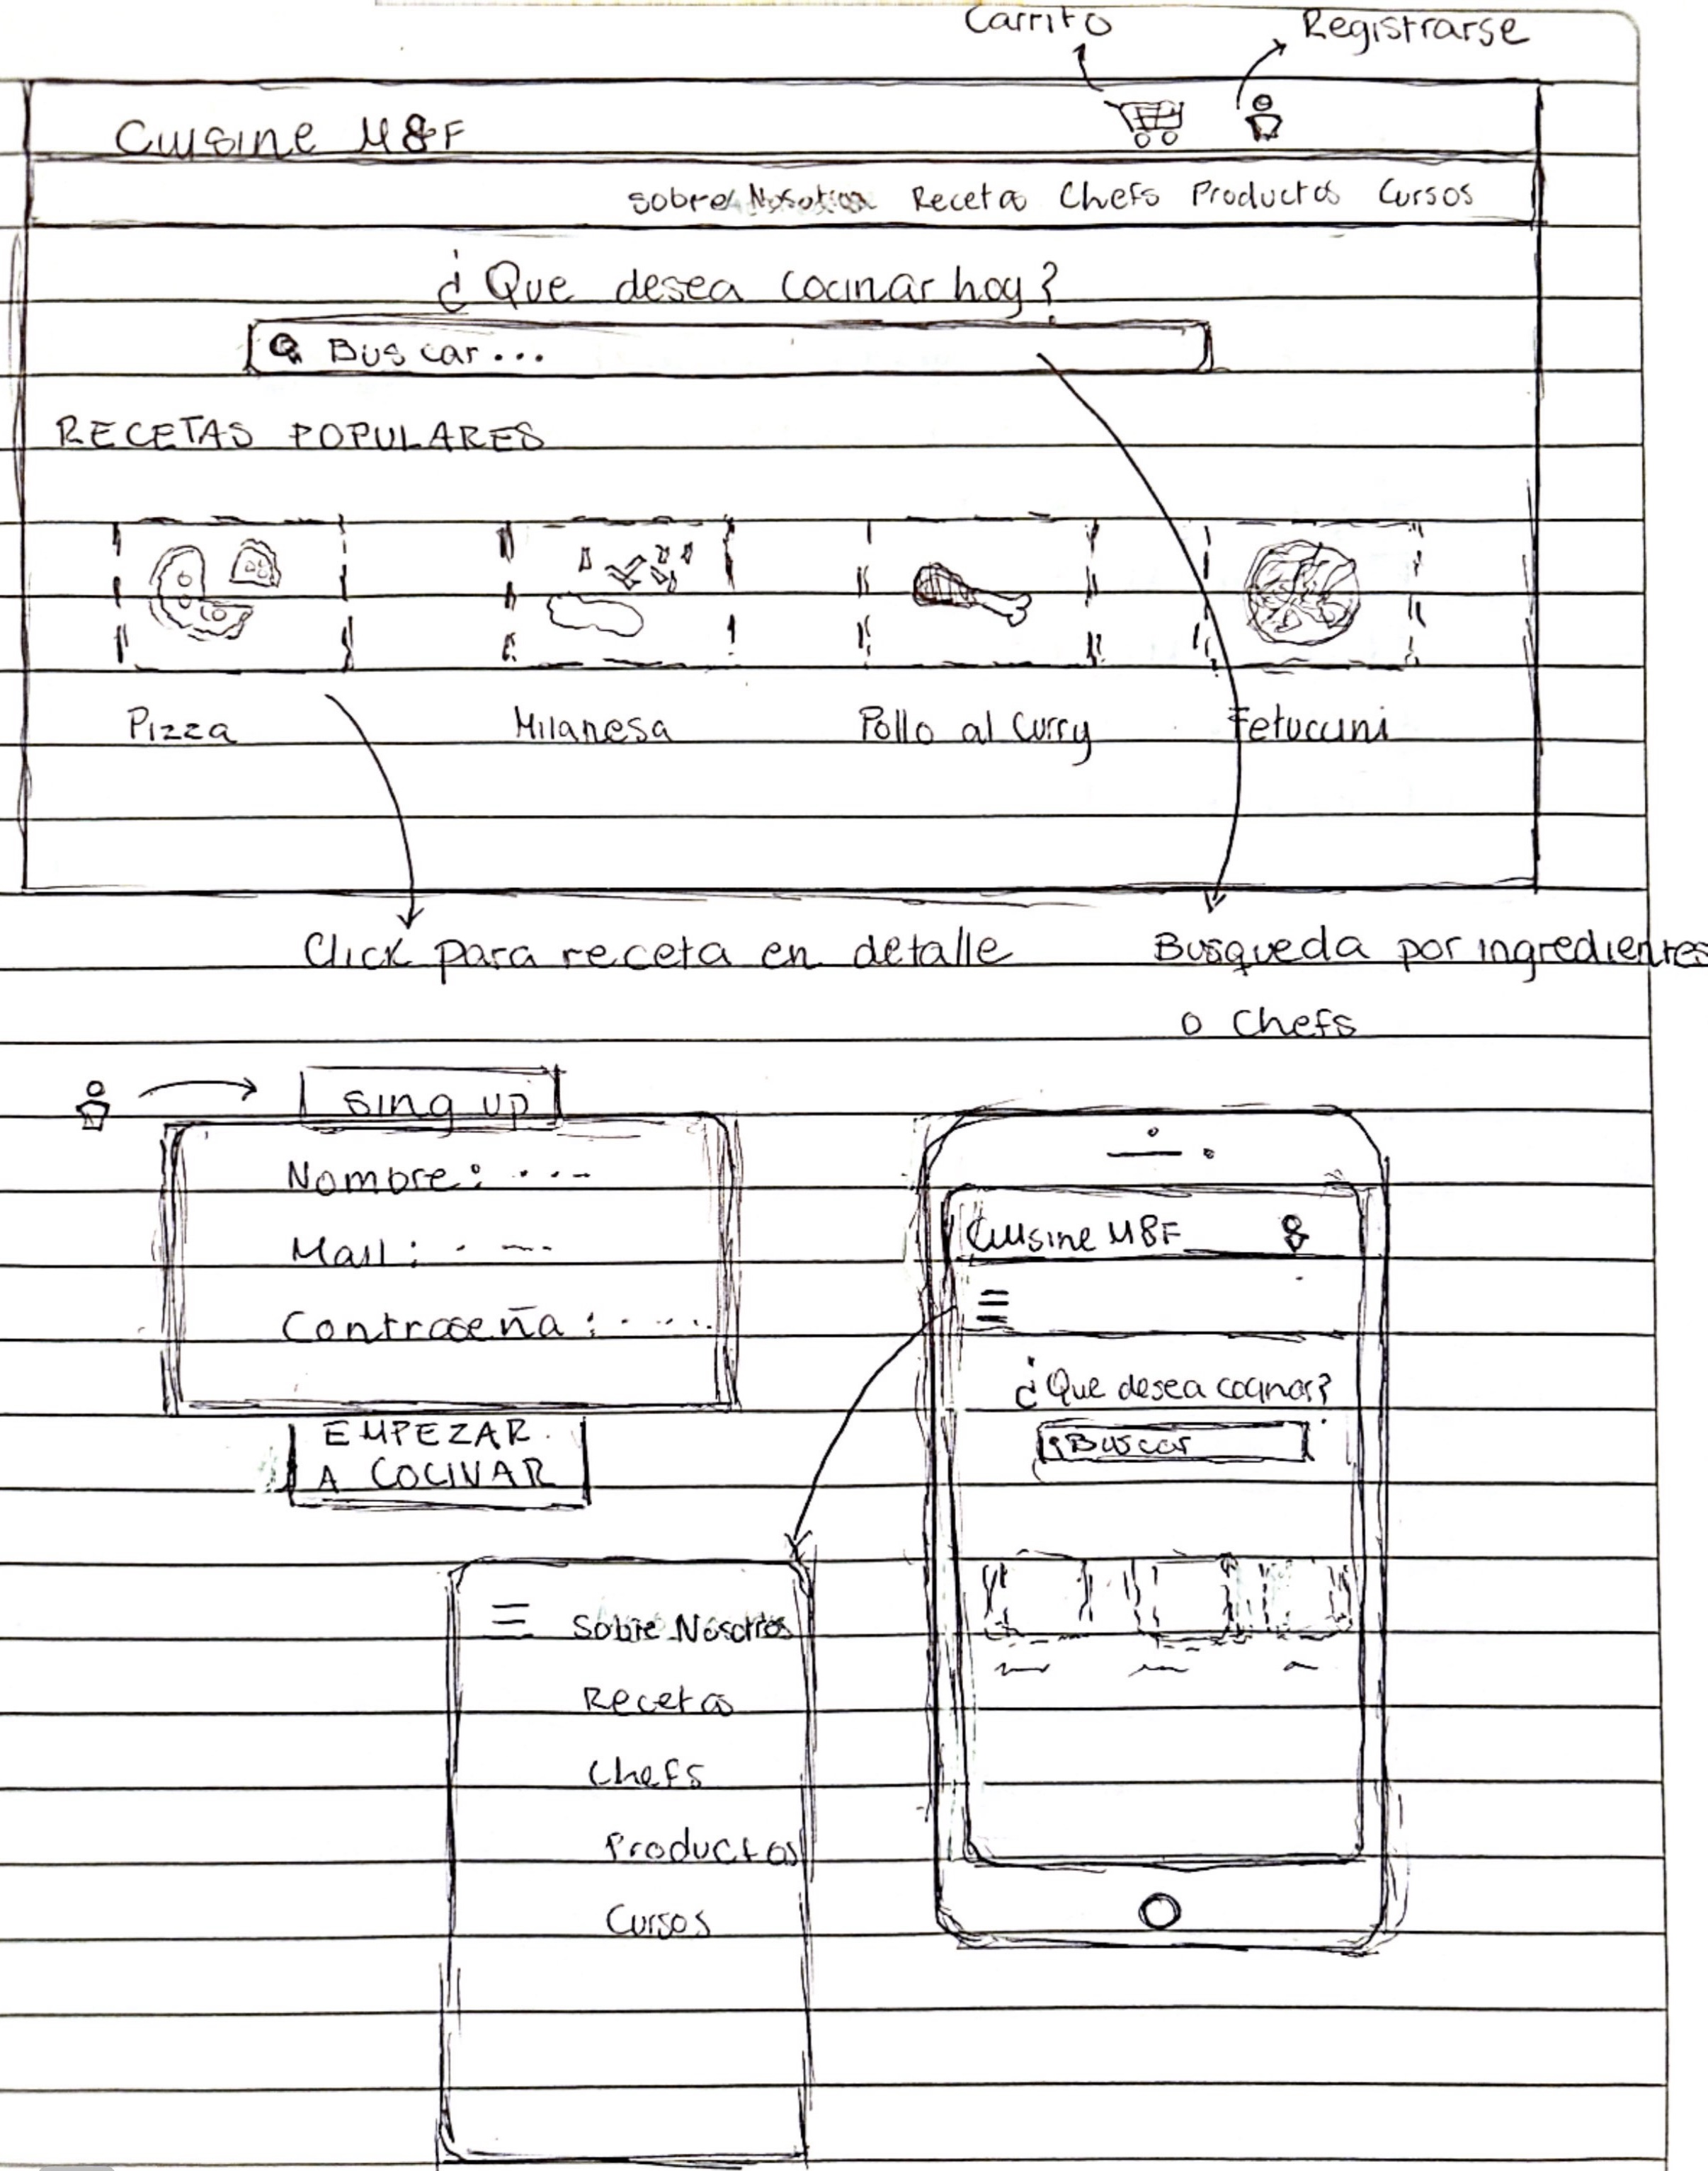 Carrito
Registrarse
Cuisine M&F
Sobre Nosotros Recetas Chefs Productos Cursos
¿Que desea cocinar hoy?
Buscar...
RECETAS POPULARES
Pizza
Milanesa
Pollo al Curry
Fetuccini
Click para receta en detalle
Busqueda por ingredientes
o Chefs
Sing up
Nombre: . . - -
Mail: . - - -
Contraseña: . . . . .
EMPEZAR
A COCINAR
Cuisine M&F
¿Que desea cocinar?
Buscar
Sobre Nosotros
Recetas
Chefs
Productos
Cursos